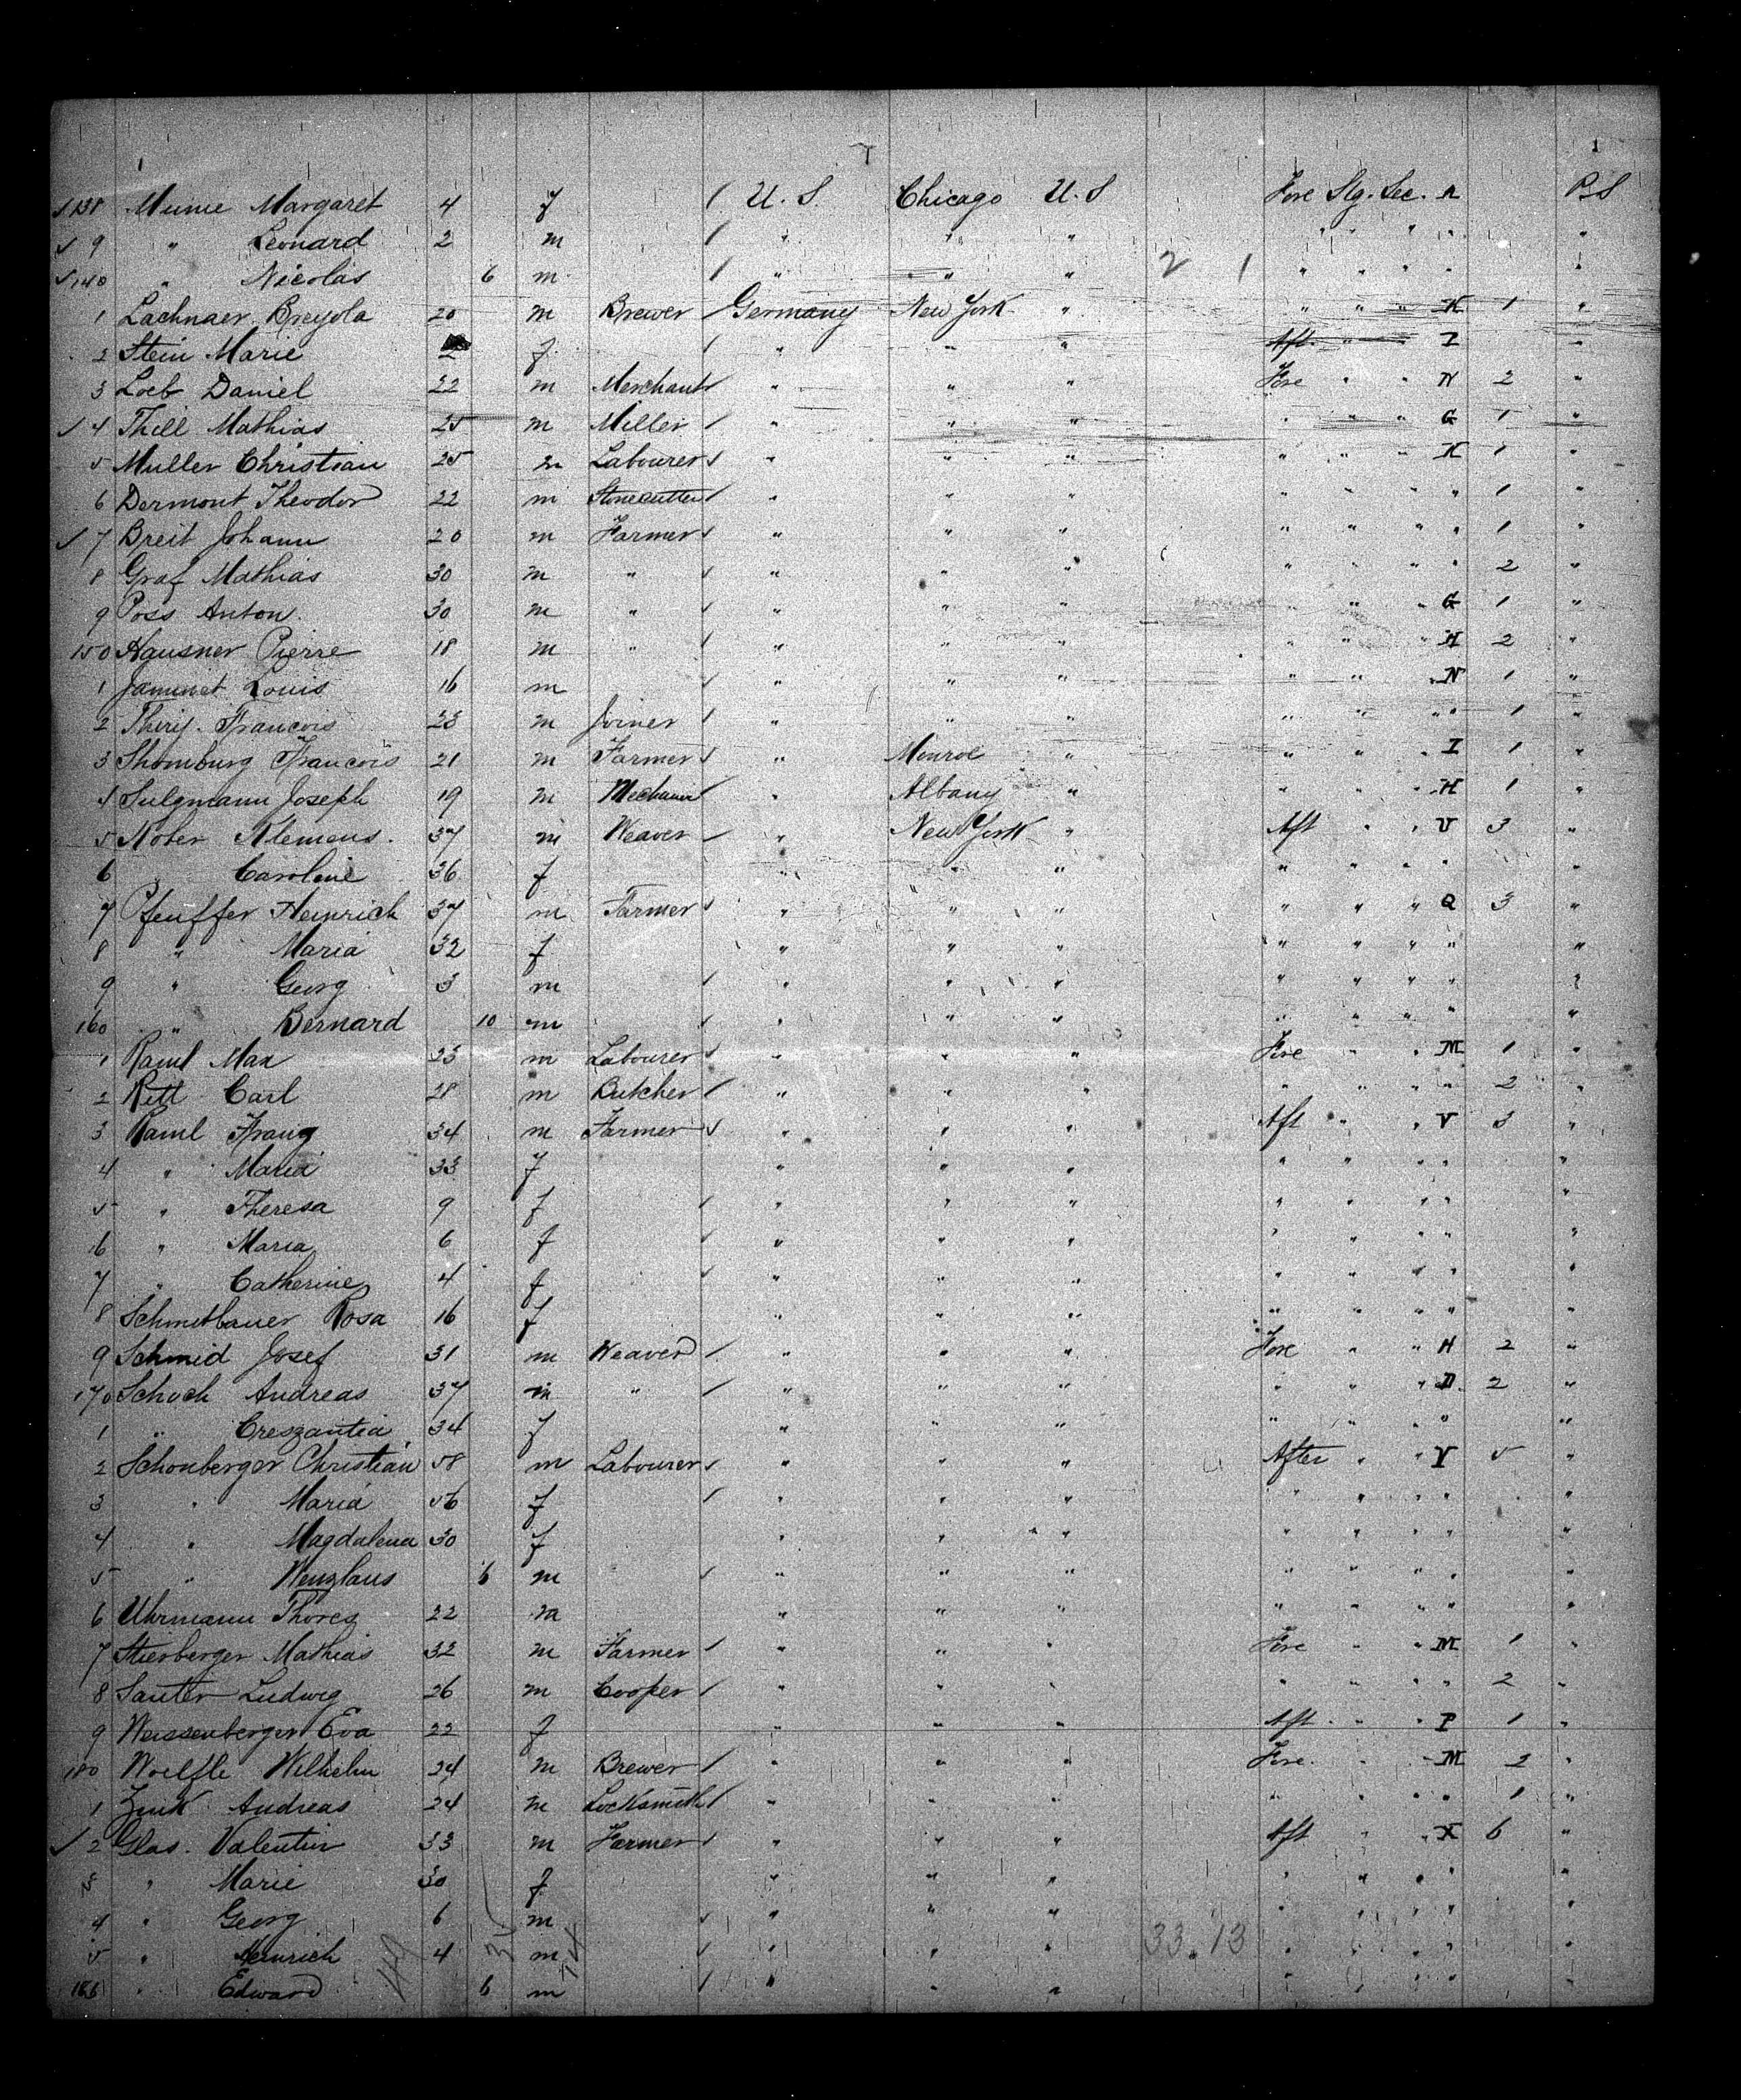 138 Munie Margaret 4 f / U. S. Chicago U. S Fore Stg. Sec. A P. S
9 " Leonard 2 m / " " " " " " " "
140 " Nicolas 6 m / " " " 2 1 " " " " "
1 Lachnaer 20 m Brewer / Germany New York " " " " K 1 "
2 Stein Marie f / " " " Aft " " I "
3 Loeb Daniel 22 m Merchant / " " " Fore " " N 2 "
4 Thill Mathias 25 m Miller / " " " " " " G 1 "
5 Muller Christian 25 m Labourer " " " " " " K 1 "
6 Dermont Theodor 22 m Stonecutter / " " " " " " " 1 "
7 Breit Johann 20 m Farmer " " " " " " " 1 "
8 Graf Mathias 30 m " " " " " " " " 2 "
9 Poss Anton. 30 m " " " " " " " G 1 "
150 Hausner Pierre 18 m " / " " " " " " H 2 "
1 Jaminet Louis 16 m " " " " " " N 1 "
2 Thiry. Francois 23 m Joiner / " " " " " " " 1 "
3 Shomburg Francois 21 m Farmer " Monroe " " " " I 1 "
4 Sulgmann Joseph 19 m Mechanic / " Albany " " " " H 1 "
5 Kober Klemens. 37 m Weaver / " New York " Aft " " V 3 "
6 " Caroline 36 f " " " " " " " "
7 Pfeuffer Heinrich 37 m Farmer " " " " " " Q 3 "
8 " Maria 32 f " " " " " " " "
9 " Georg 3 m / " " " " " " " "
160 " Bernard 10 m / " " " " " " " "
1 Raml Max 23 m Labourer " " " Fore " " M 1 "
2 Ritt Carl 28 m Butcher / " " " " " " " 2 "
3 Raml Franz 34 m Farmer " " " Aft " " V 3 "
4 " Maria 33 f " " " " " " " "
5 " Theresa 9 f / " " " " " " " "
6 " Maria 6 f / " " " " " " " "
7 " Catherine 4 f " " " " " " " "
8 Schmidbauer Rosa 16 f " " " " " " " "
9 Schmid Josef 31 m Weaver / " " " Fore " " H 2 "
170 Schoch Andreas 37 m " / " " " " " " D. 2 "
1 " Creszantia 34 f " " " " " " " "
2 Schonberger Christian 58 m Labourer " " " After " " Y 5 "
3 " Maria 56 f / " " " " " " " "
4 " Magdalena 30 f " " " " " " " "
5 " Wenzlaus 6 m " " " " " " " "
6 Uhrmann 22 m " " " " " " " "
7 Stierberger Mathias 32 m Farmer / " " " Fore " " M 1 "
8 Sauter Ludwig 26 m Cooper / " " " " " " " 2 "
9 Weissenberger Eva 22 f " " " Aft " " P 1 "
180 Woelfle Wilhelm 24 m Brewer / " " " Fore " " M 2 "
1 Zink Andreas 24 m Locksmith / " " " " " " " 1 "
2 Glas. Valentin 33 m Farmer " " " Aft " " X 6 "
3 " Marie 30 f " " " " " " " "
4 " Georg 6 m " " " " " " " "
5 " Heinrich 4 m " " " 33.13 " " " " "
186 " Edward 6 m / " " " " " " " "